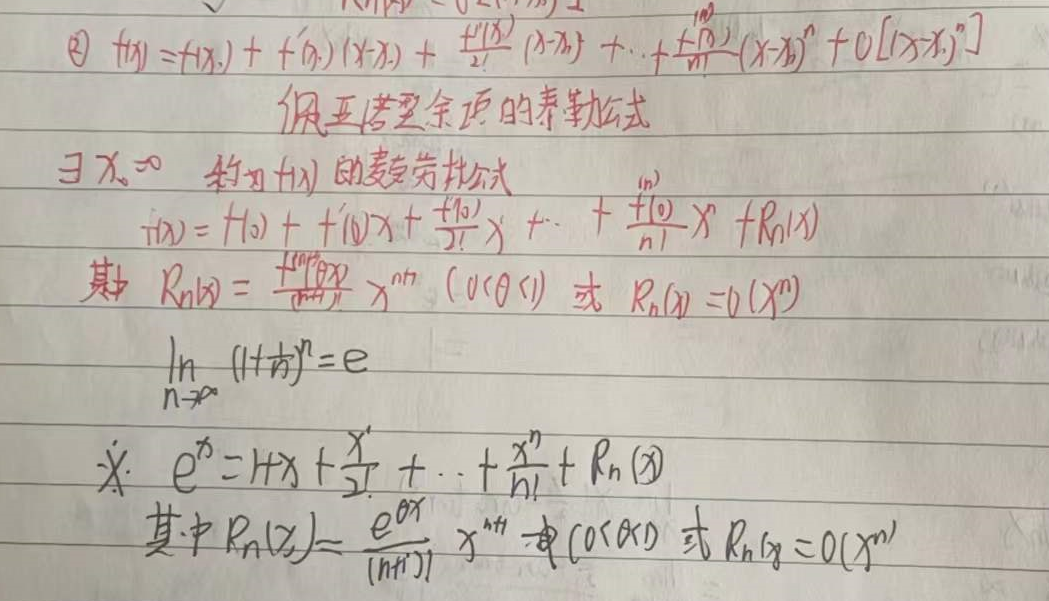 ② f(x) = f(x₀) + f'(x₀)(x-x₀) + f''(x₀)/2! (x-x₀)² + ... + f⁽ⁿ⁾(x₀)/n! (x-x₀)ⁿ + o[(x-x₀)ⁿ]
佩亚诺型余项的泰勒公式
若 x₀=0 称为f(x)的麦克劳林公式
f(x) = f(0) + f'(0)x + f''(0)/2! x² + ... + f⁽ⁿ⁾(0)/n! xⁿ + Rn(x)
其中 Rn(x) = f⁽ⁿ⁺¹⁾(θx)/(n+1)! xⁿ⁺¹ (0<θ<1) 或 Rn(x) = o(xⁿ)
lim n→∞ (1+1/n)ⁿ = e
※ eˣ = 1+x + x²/2! + ... + xⁿ/n! + Rn(x)
其中 Rn(x) = e^(θx)/(n+1)! xⁿ⁺¹ (0<θ<1) 或 Rn(x) = o(xⁿ)